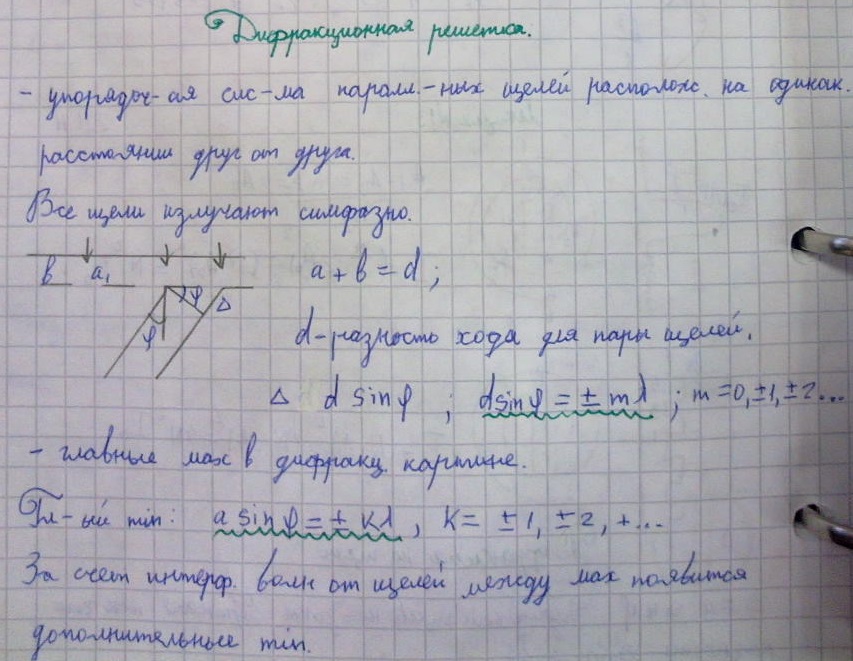 Дифракционная решетка.
- упорядоч-ая сис-ма паралл.-ных щелей располож. на одинак.
расстоянии друг от друга.
Все щели излучают симфазно.
в a, φ φ Δ a + в = d ;
d-разность хода для пары щелей.
Δ d sin φ ; dsin φ = ± mλ ; m = 0, ±1, ±2...
- главные max в дифракц. картине.
Гл-ый min: a sin φ = ± кλ , К = ± 1, ± 2, + ...
За счет интерф. волн от щелей между max появится
дополнительные min.